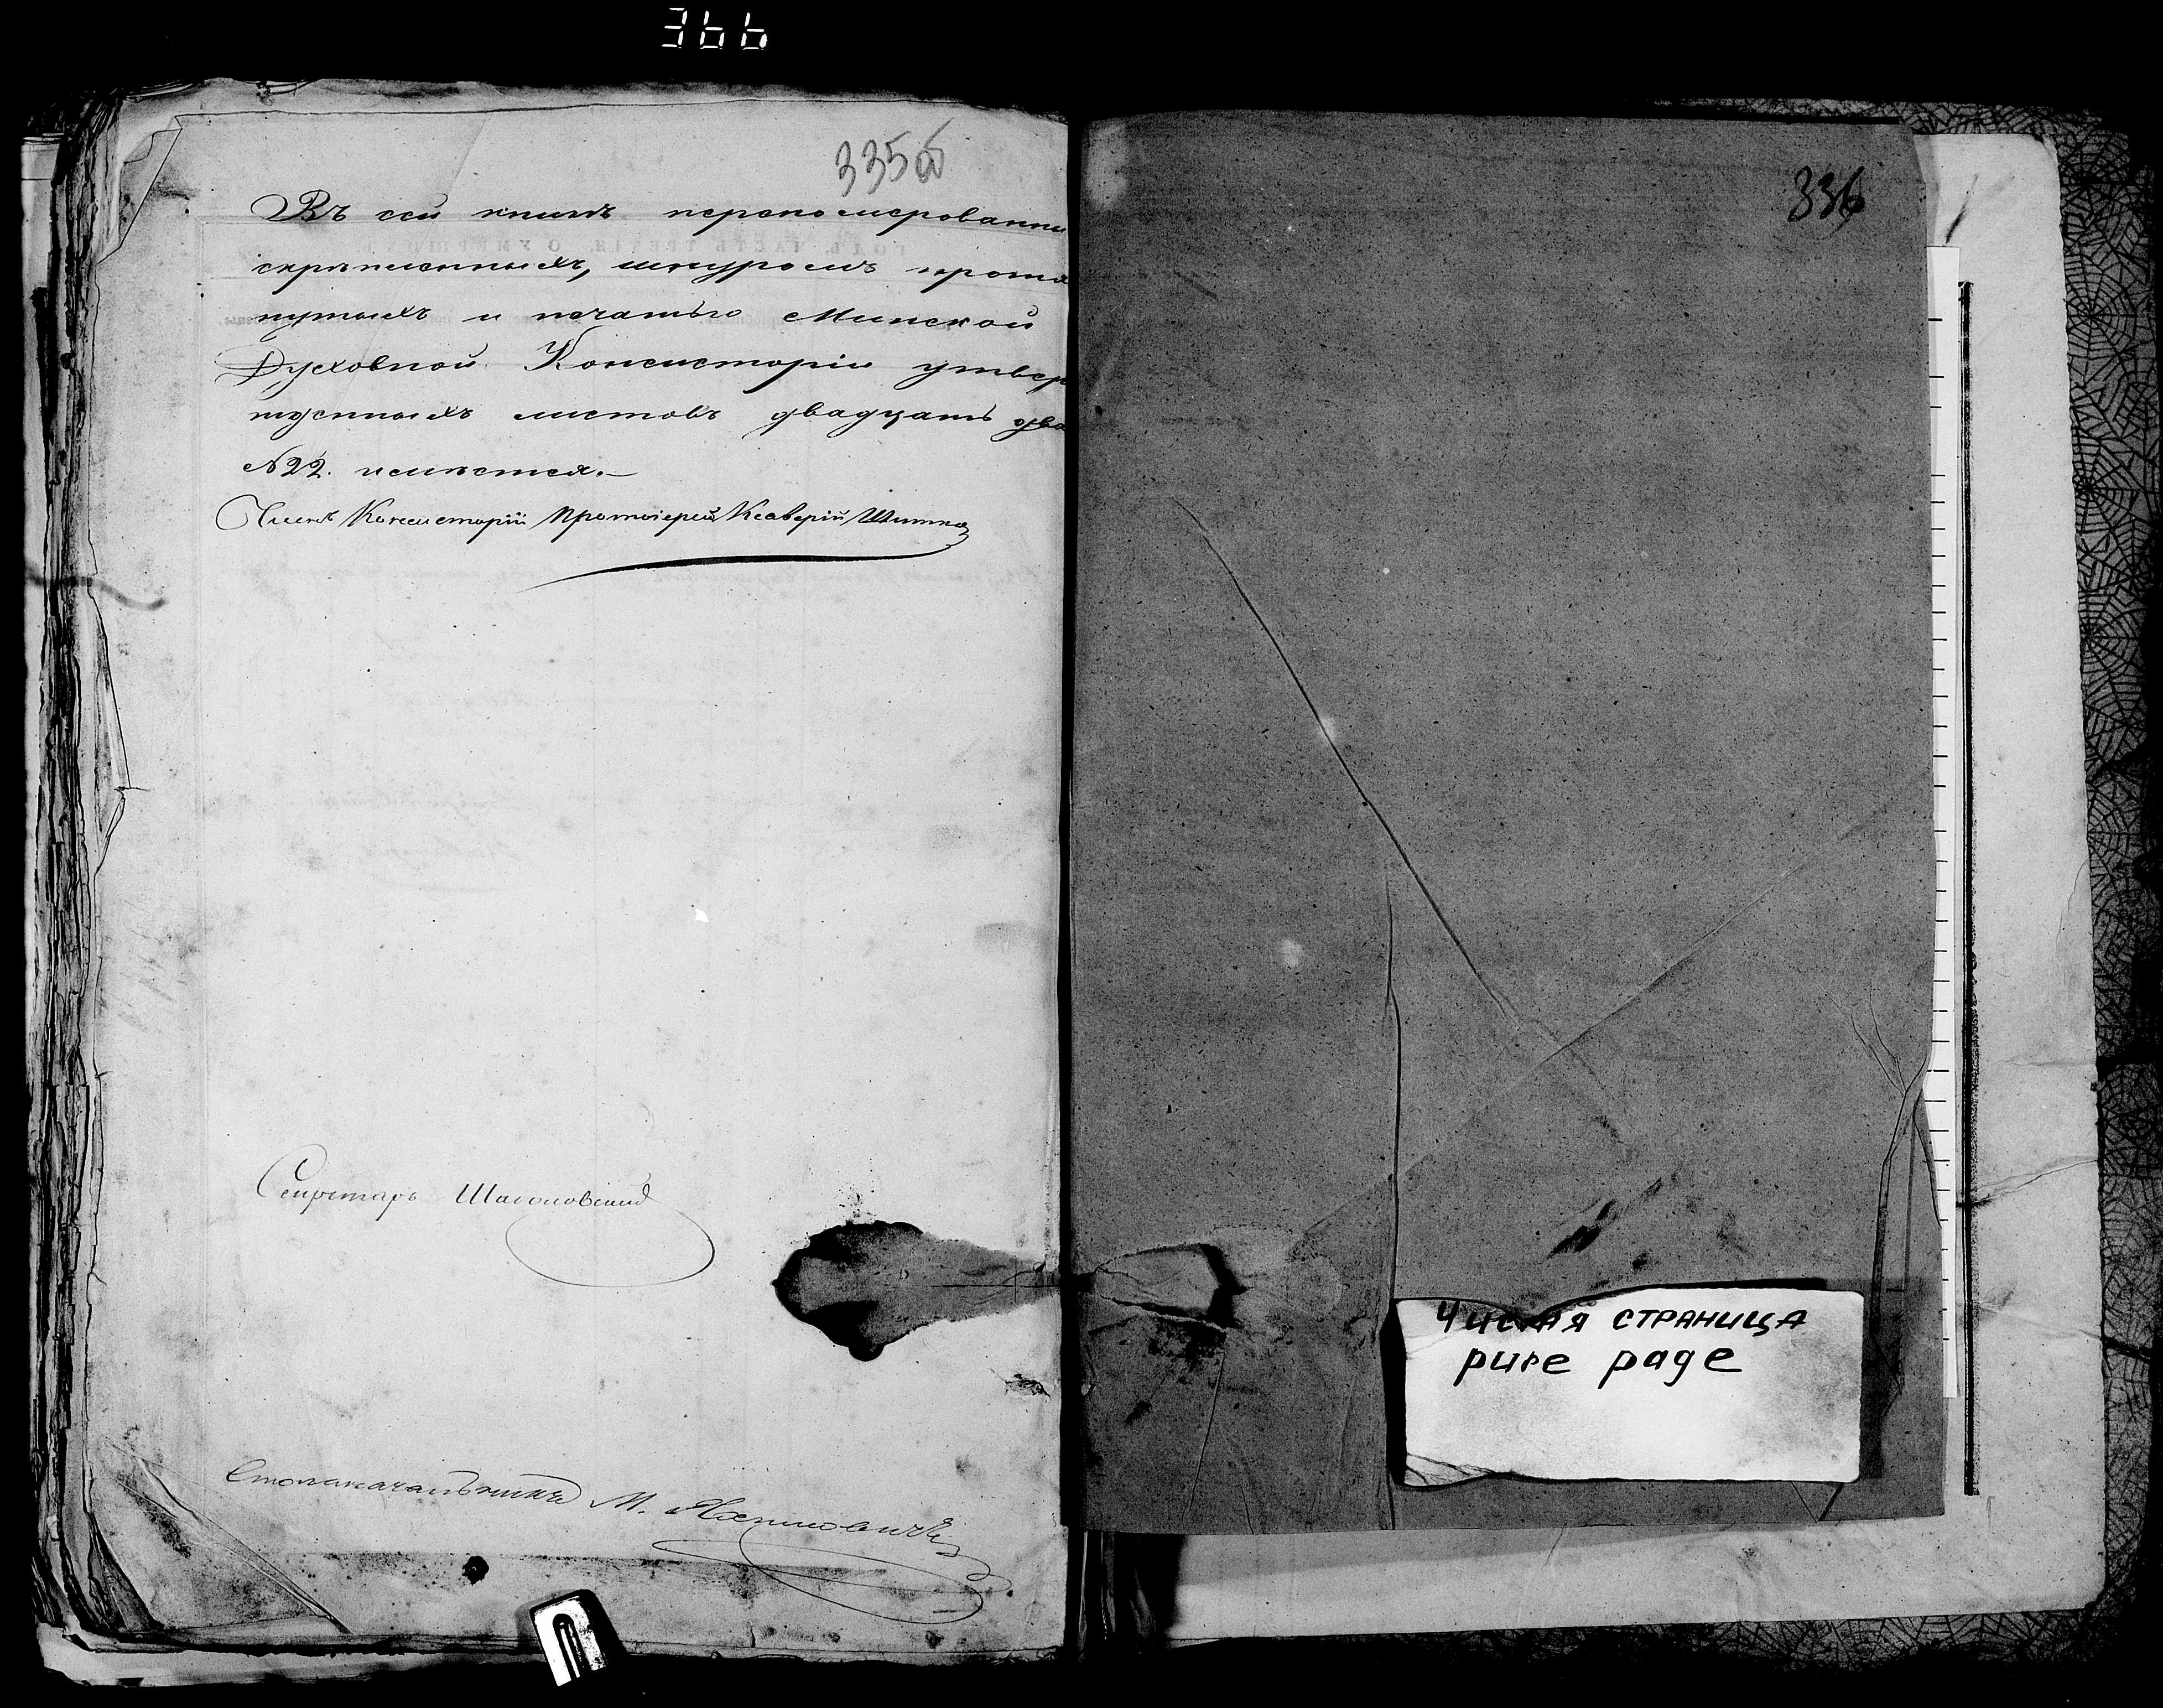 366
335об
Въ сей книгѣ перенумерованны
скрѣпленныхъ, шнуромъ протя
нутыхъ и печатью Минской
Духовной Консисторіи утвер
жденныхъ листовъ двадцать два
№ 22. имѣется.—
Членъ Консисторіи Протоіерей Ксаверій
Секретарь
Столоначальникъ М.
336
Чистая страница
pure page